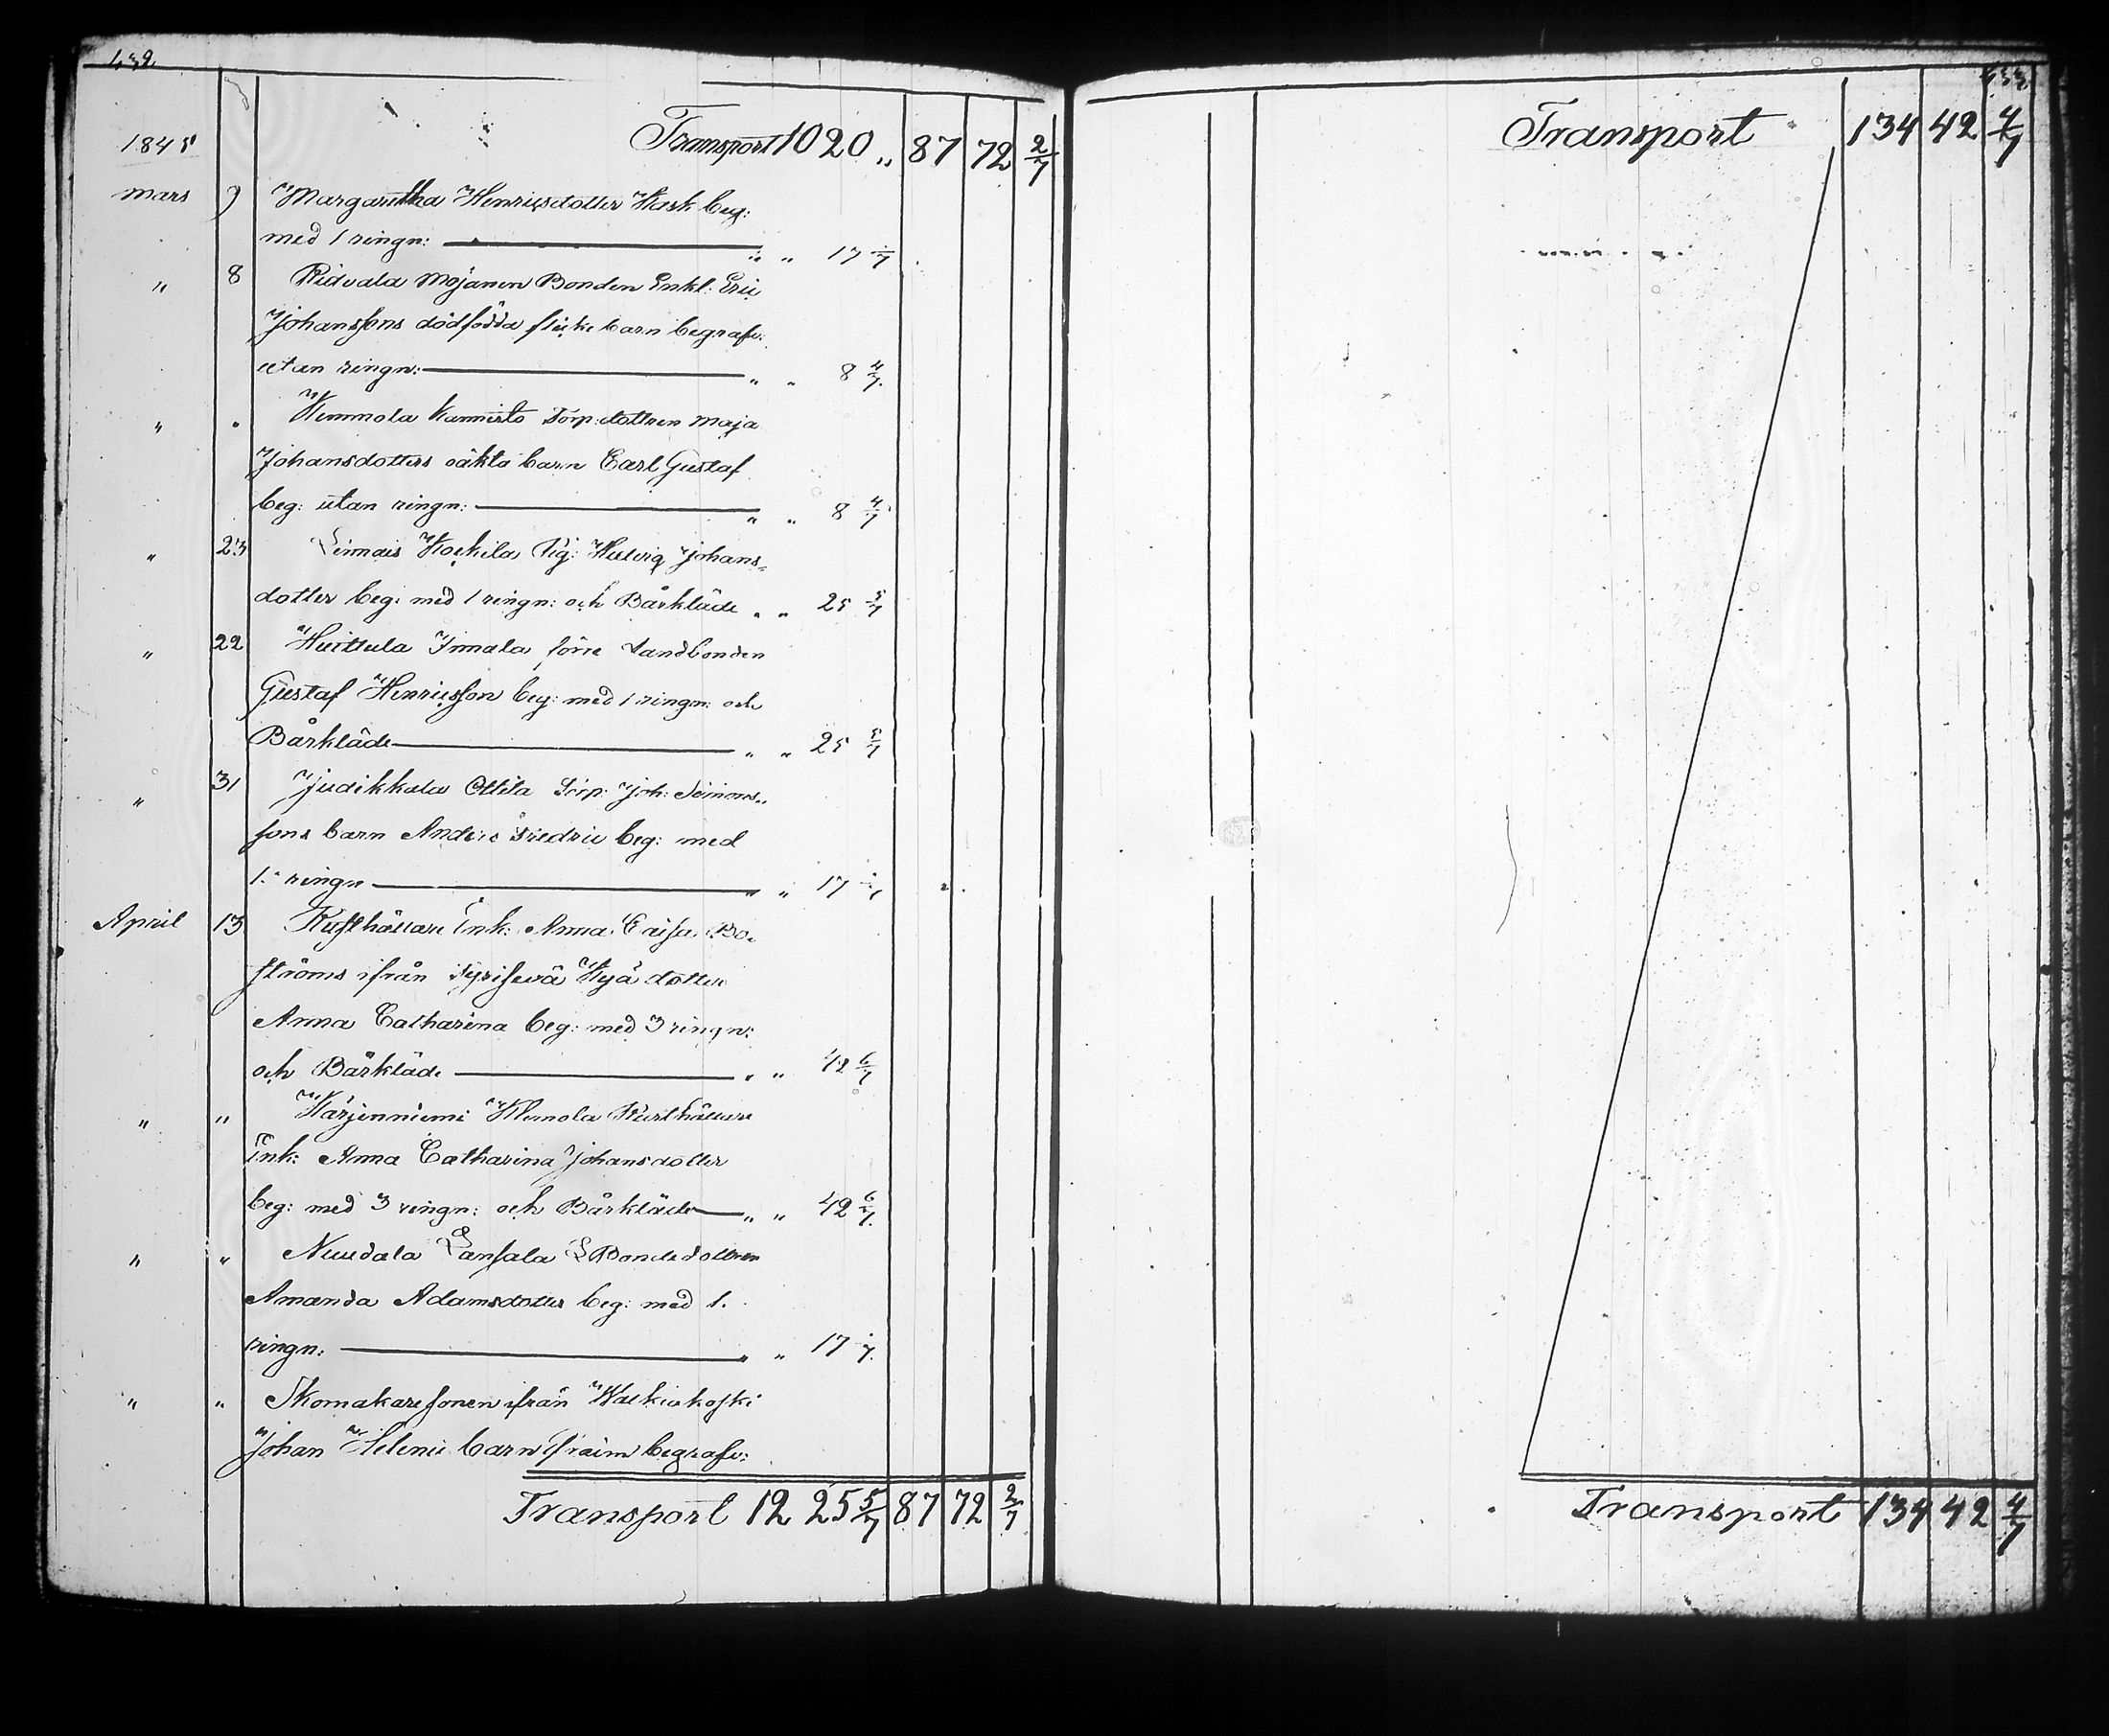 432
1845 Transport 10 20 „ 87 72 2/7
Mars 9 Margaretha Henricsdotter Kask beg:
med 1 ringn: „ „ 17 1/7
„ 8 Ridvala Mojanen Bonden Enkl: Eric
Johanssons dödfödda flicke barn begrafv:
utan ringn: „ „ 8 4/7.
„ „ Kemmola Kannisto Torp: dottren Maja
Johansdotters oäkta barn Carl Gustaf
beg: utan ringn: „ „ 8 4/7
„ 23 Linnais Kockila Pig: Hedvig Johans-
dotter beg: med 1 ringn: och Bårkläde „ „ 25 5/7
„ 22 Huittula Immala förre Landbonden
Gustaf Henricsson beg: med 1 ringn: och
Bårkläde „ „ 25 5/7
„ 31 Judikkala Ollila Torp: Joh: Simons-
sons barn Anders Fredric beg: med
1: ringn „ „ 17 1/7
April 13 Rusthållare Enk: Anna Caisa Bo-
ströms ifrån Kyä dotter
Anna Catharina beg: med 3 ringn:
och Bårkläde „ „ 42 6/7
„ „ Kärjenniemi Klemola Rusthållare
Enk: Anna Catharina Johansdotter
beg: med 3 ringn: och Bårkläde „ „ 42 6/7.
„ „ Nuudala Lansala Bondedottren
Amanda Adamsdotter beg: med 1.
ringn: „ „ 17 1/7.
„ „ Skomakaresonen ifrån Walkiakoski
Johan Helenii barn Efraim begrafv:
Transport 12 25 5/7 87 72 2/7
433
Transport 134 42 4/7
Transport 134 42 4/7